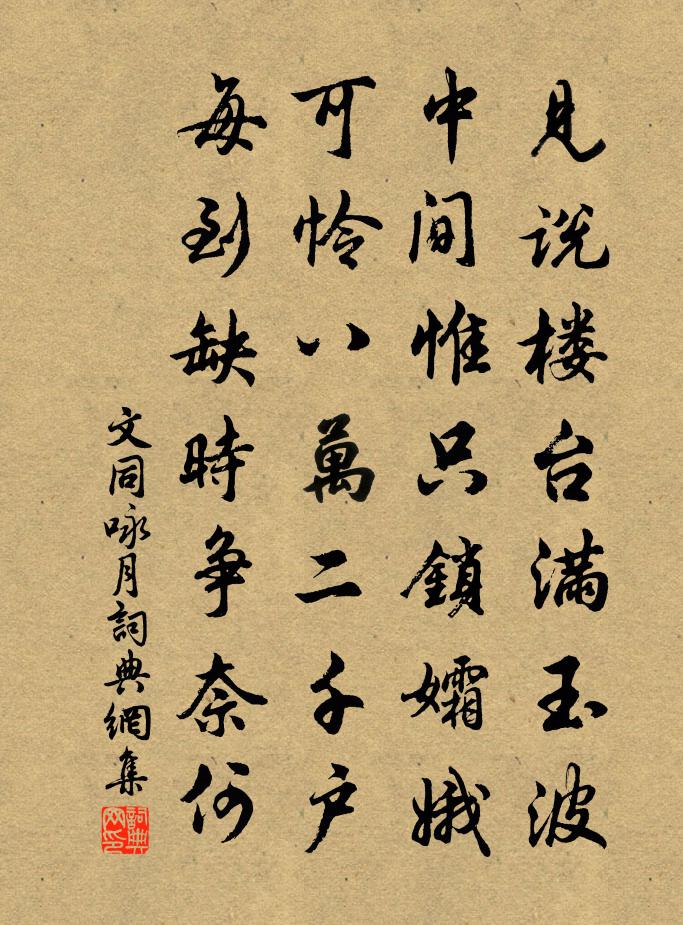 見説楼台滿玉波
中间惟只鎖孀娥
可怜八萬二千户
每到缺時争奈何
文同咏月詞典網集
詞典網印